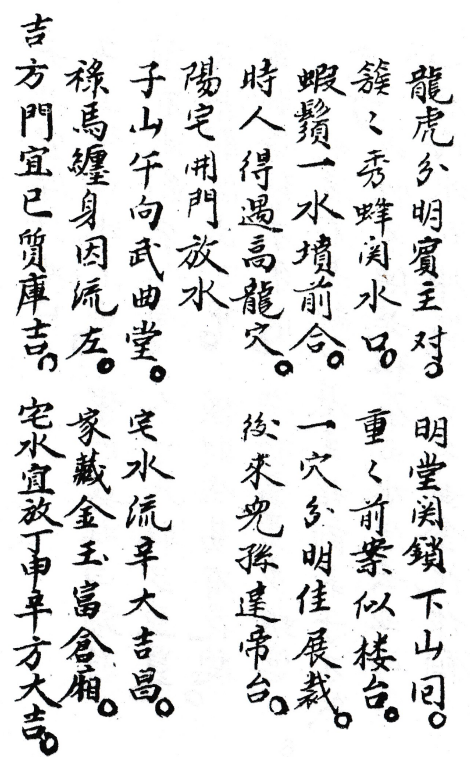 龍虎分明賓主对。明堂関鎖下山囘。
簇〻秀蜂関水口。重〻前案似楼台。
蝦鬚一水墳前合。一穴分明佳展裁。
時人得遇高龍穴。後來兒孫達帝台。
陽宅開門放水
子山午向武曲堂。宅水流辛大吉昌。
祿馬纏身因流左。家藏金玉富倉廂。
吉方門宜巳質庫吉。宅水宜放丁申辛方大吉。